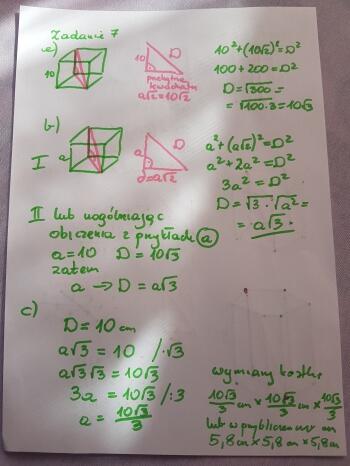 Zadanie 7
a)
10
10
D
przekątna
kwadratu
a√2=10√2
10²+(10√2)²=D²
100+200=D²
D=√300=
=√100·3=10√3
b)
I
a
a
D
d=a√2
a²+(a√2)²=D²
a²+2a²=D²
3a²=D²
D=√3·√a²=
=a√3.
II lub uogólniając
obliczenia z przykładu a
a=10 D=10√3
zatem
a → D=a√3
c)
D=10 cm
a√3=10 /·√3
a√3√3=10√3
3a=10√3/:3
a=10√3/3
wymiary kostki
10√3/3 cm × 10√3/3 cm × 10√3/3
lub w przybliżeniu cm
5,8cm×5,8cm×5,8cm